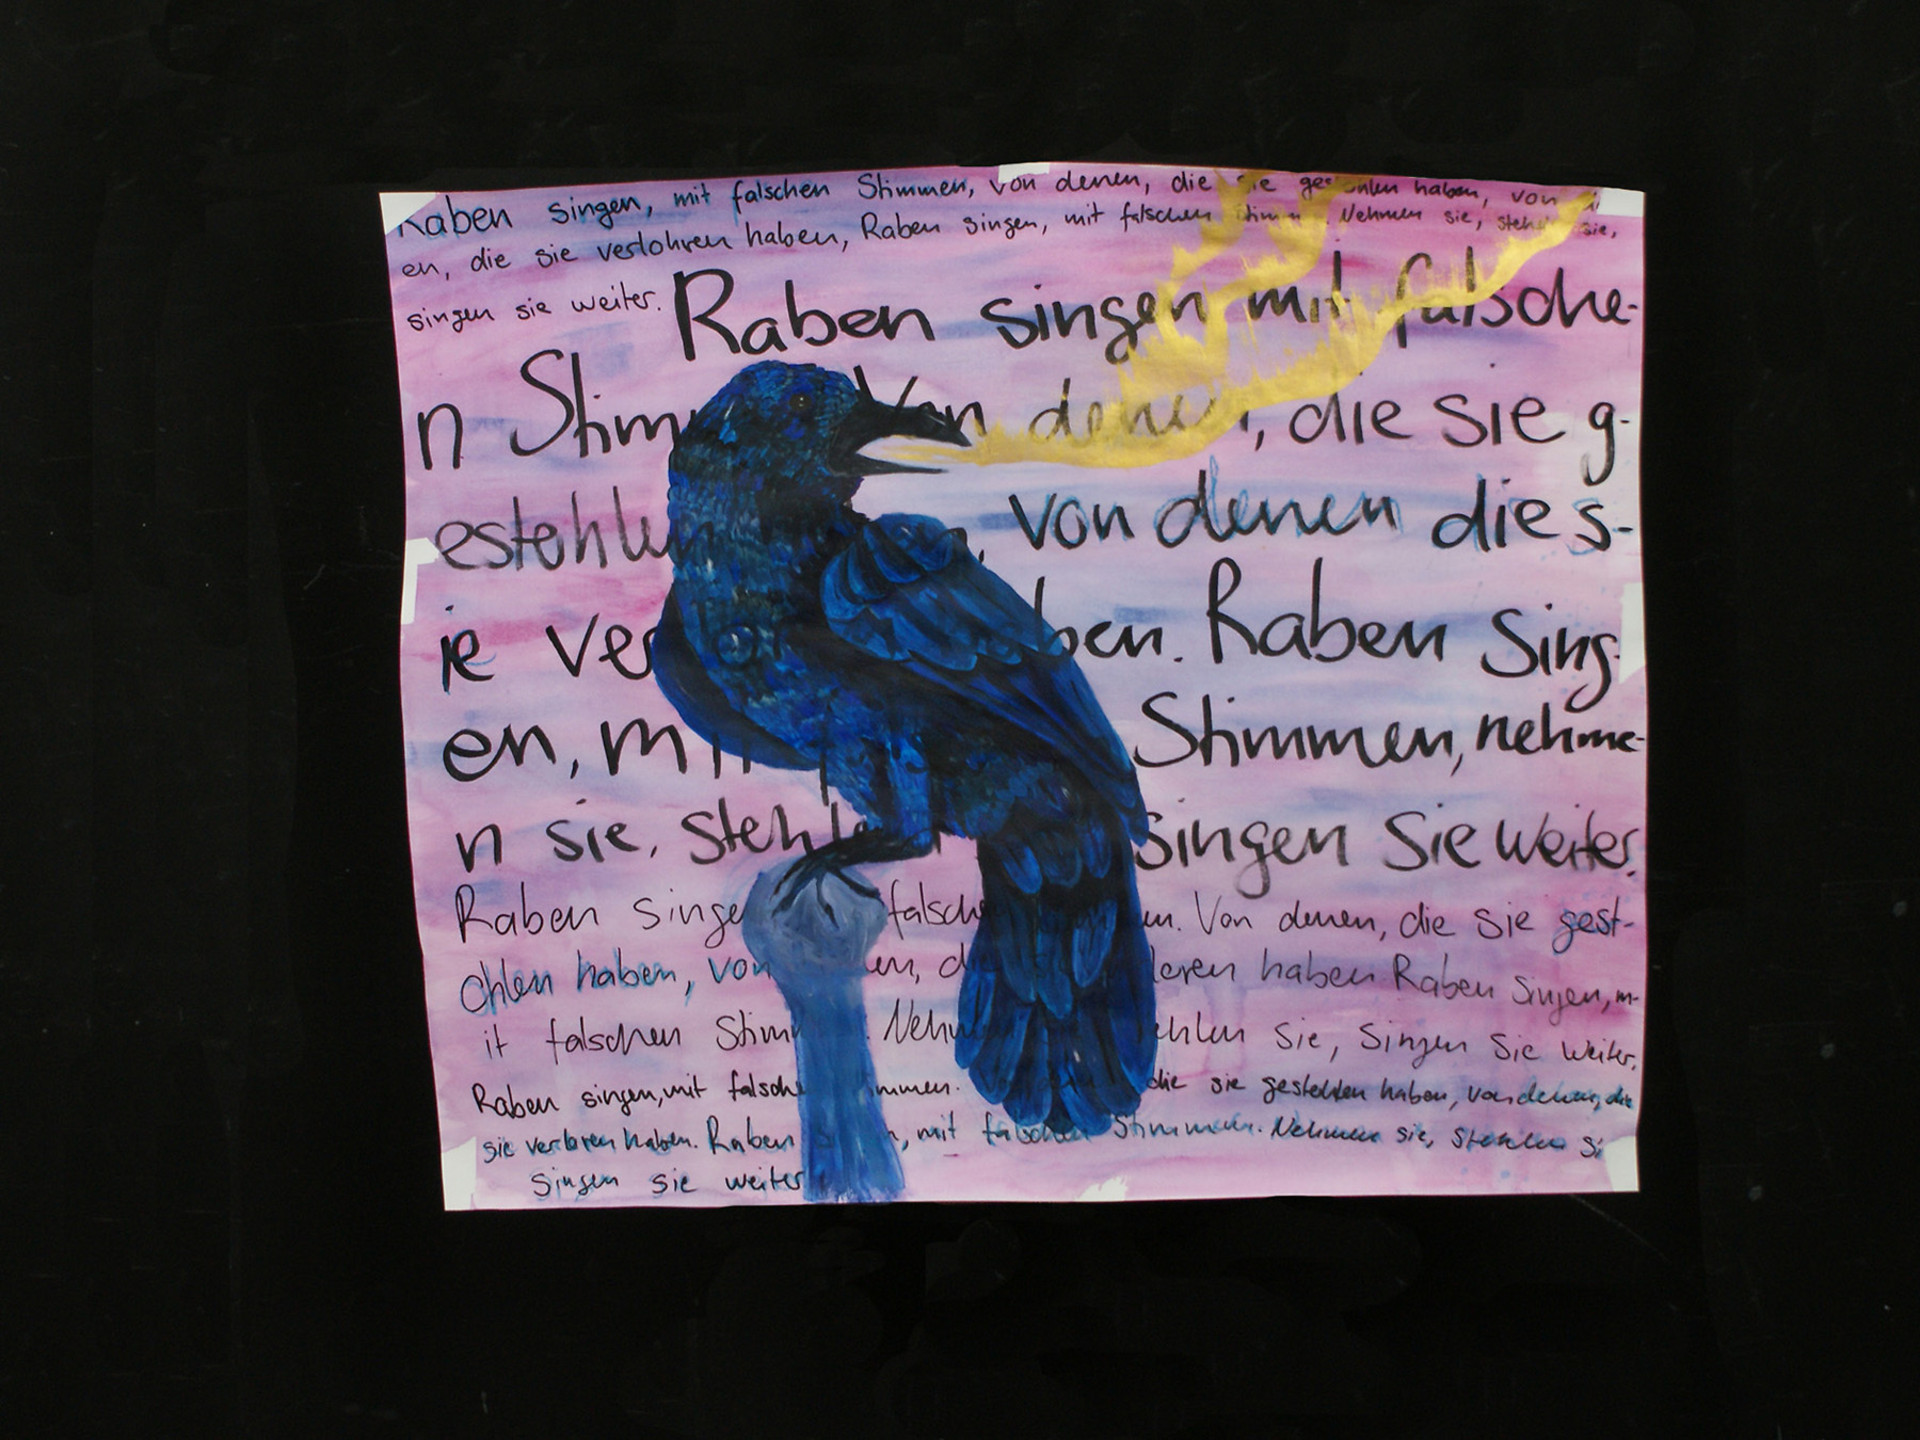 Raben singen, mit falschen Stimmen, von denen, die sie haben, von
en, die sie verlohren haben, Raben singen, mit falschen Nehmen sie, sie,
singen sie weiter.
Raben singen mit falsche-
n Stimm Von denen, die sie g-
estehlen , von denen die s-
ie ver ben. Raben Sing-
en, mit Stimmen, nehme-
n sie, stehlen singen Sie weiter.
Raben singe falsche en. Von denen, die sie gest-
ohlen haben, von en, d loren haben Raben singen, m-
it falschen Stimm . Nehm ehlen sie, singen sie weiter.
Raben singen, mit falsche immen. die sie gestehlen haben, von denen, die
sie verloren haben. Raben n, mit falschen Stimmen. Nehmen sie, stehlen si
singen sie weiter